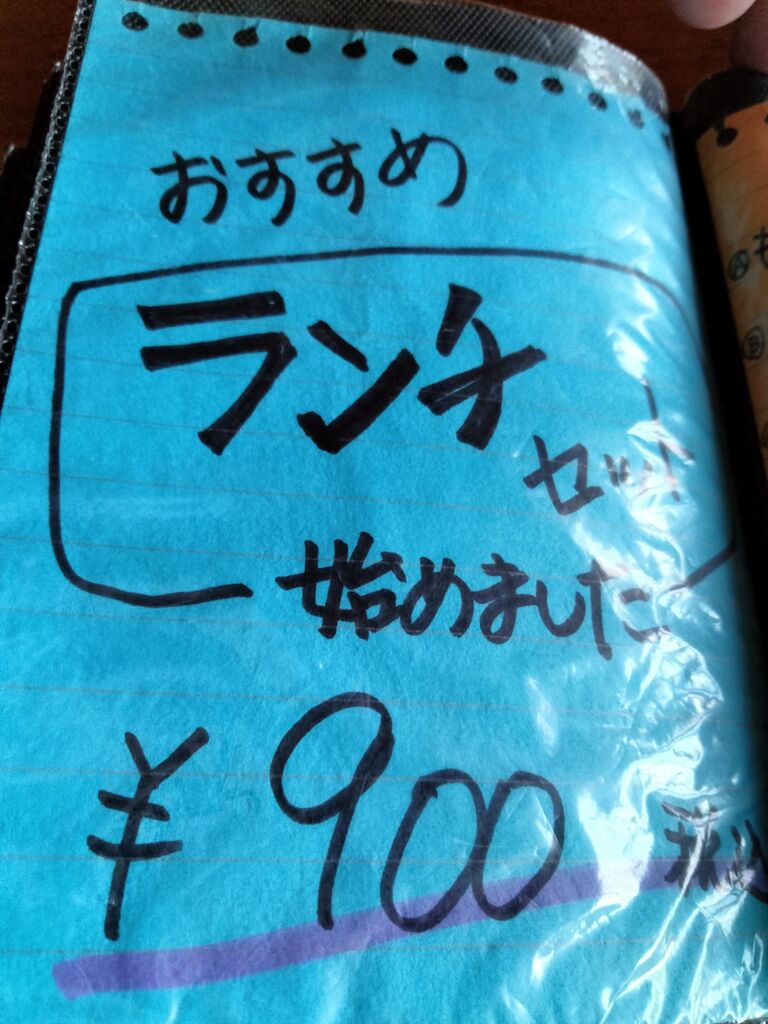 おすすめ
ランチ
セット
始めました
¥900 税込